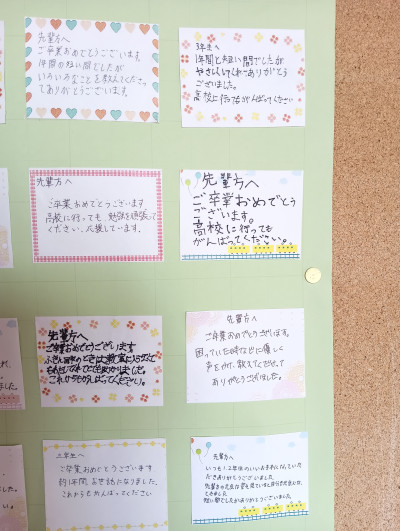 先輩方へ
ご卒業おめでとうございます。
1年間の短い間でしたが
いろいろなことを教えてくださっ
てありがとうございます。
3年生へ
1年間と短い間でしたが
やさしくしてくれてありがとう
ございました。
高校に行ってもがんばってください
先輩方へ
ご卒業おめでとうございます
高校に行っても 勉強を頑張って
ください。応援しています。
先輩方へ
ご卒業おめでとう
ございます。
高校に行っても
がんばってください。
先輩方へ
ご卒業おめでとうございます
これからもがんばってください。
先輩方へ
ご卒業おめでとうございます。
困っていた時などに優しく
声をかけ、教えてくださって
ありがとうございました。
三年生へ
ご卒業おめでとうございます
約1年間、お世話になりました。
これからもがんばってください
先輩方へ
ご卒業おめでとうございました
短い間でしたがありがとうございました
れ、
ました。